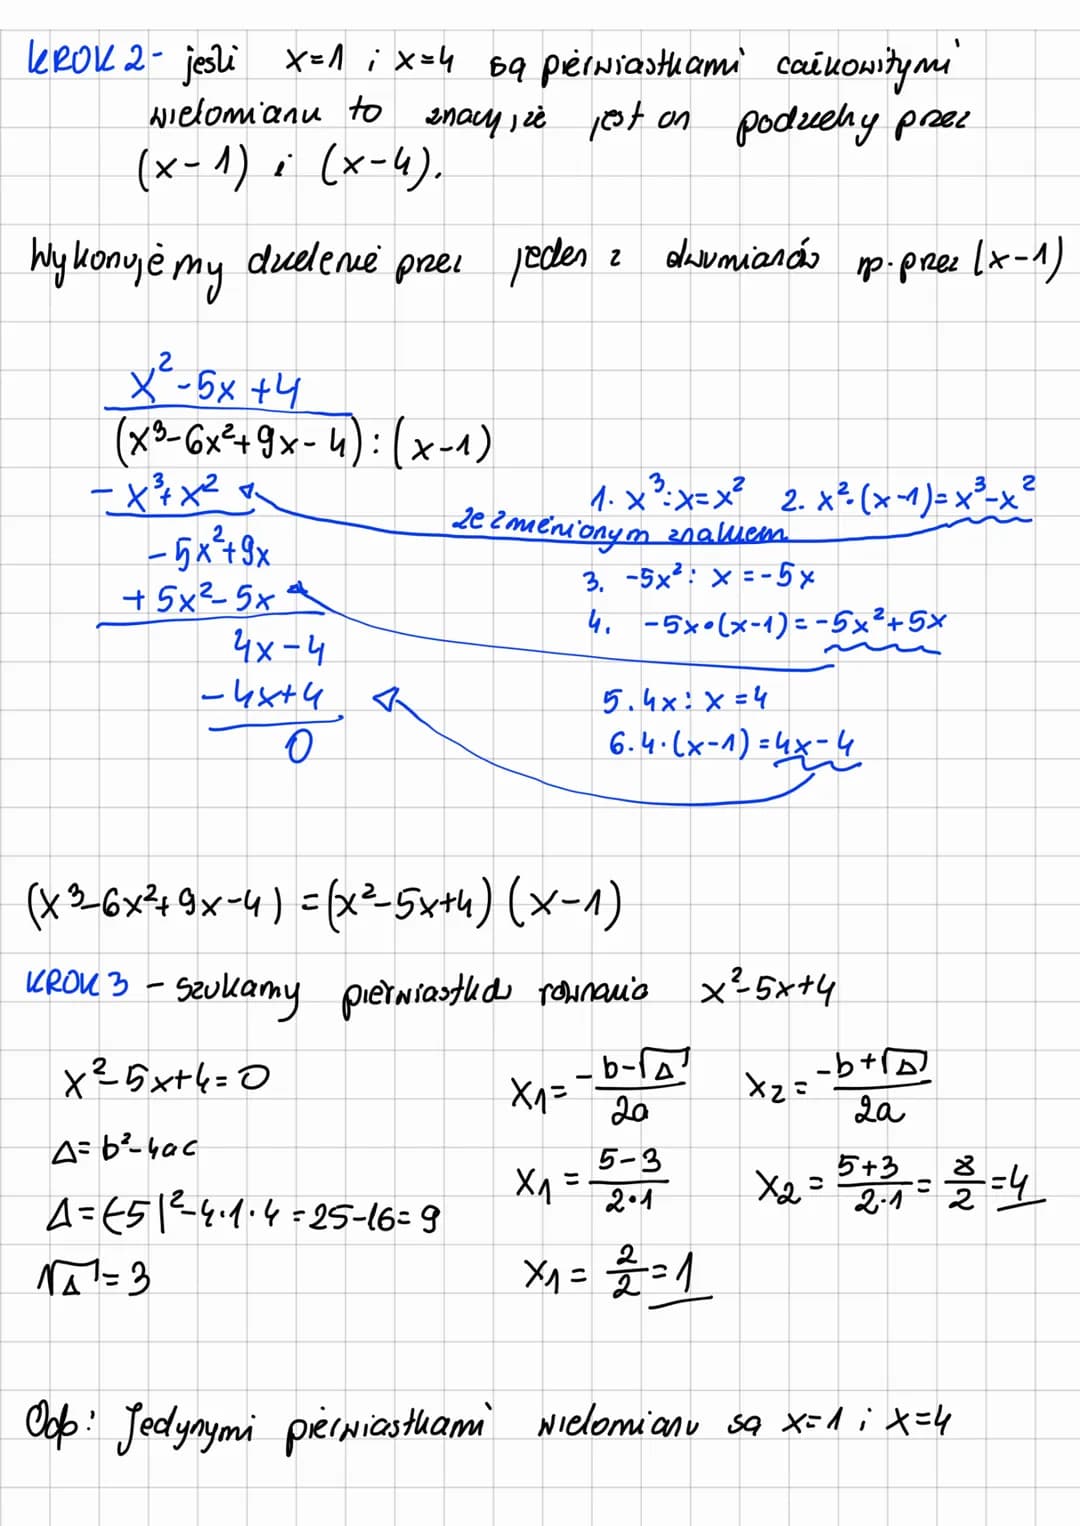 KROK 2 - jesli x=1 i x=4 są pierwiastkami całkowitymi
wielomianu to znaczy, że jest on podzielny przez
(x-1) i (x-4).
Wykonujemy dzielenie przez jeden z dwumianów np. przez (x-1)
x²-5x+4
(x³-6x²+9x-4):(x-1)
-x³+x²
1. x³:x=x² 2. x²·(x-1)=x³-x²
ze zmienionym znakiem
-5x²+9x
3. -5x²: x = -5x
+5x²-5x
4. -5x·(x-1)=-5x²+5x
4x-4
-4x+4
5. 4x: x = 4
0
6. 4·(x-1)=4x-4
(x³-6x²+9x-4) = (x²-5x+4)(x-1)
KROK 3 - szukamy pierwiastków równania x²-5x+4
x²-5x+4=0
x₁= -b-√Δ / 2a x₂= -b+√Δ / 2a
Δ=b²-4ac
x₁ = 5-3 / 2·1 x₂ = 5+3 / 2·1 = 8/2 = 4
Δ=(-5)²-4·1·4=25-16=9
√Δ=3
x₁ = 2/2 = 1
Odp: Jedynymi pierwiastkami wielomianu są x=1 i x=4